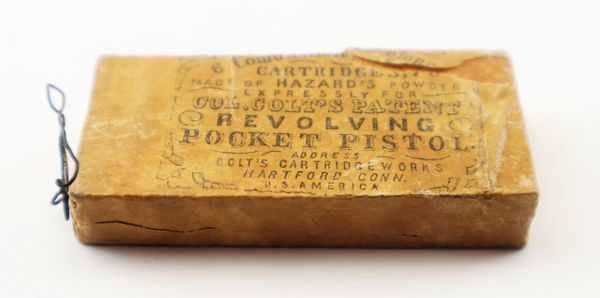 6 Combustible Envelope
CARTRIDGES,
MADE OF HAZARD'S POWDER
EXPRESSLY FOR
COL. COLT'S PATENT
REVOLVING
POCKET PISTOL.
ADDRESS
COLT'S CARTRIDGE WORKS
HARTFORD CONN.
U.S. AMERICA